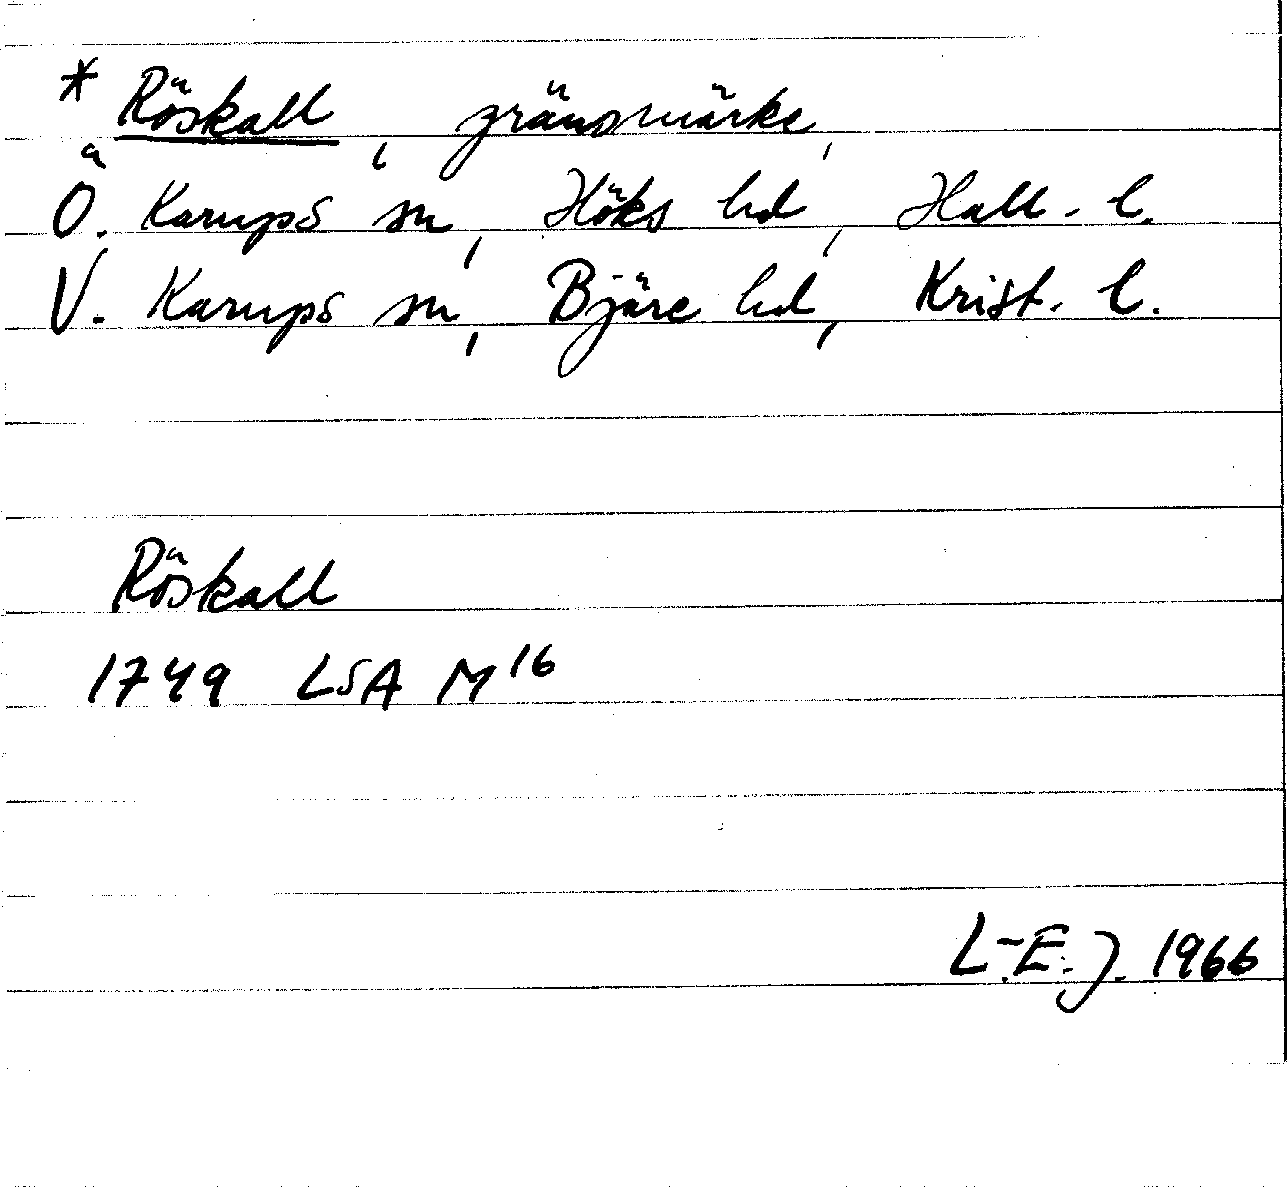 * Röskall, gränsmärke,
Ö. Karups sn, Höks hd, Hall. l.
V. Karups sn, Bjäre hd, Krist. l.
Röskall
1749 LSA M16
L-E. J. 1966